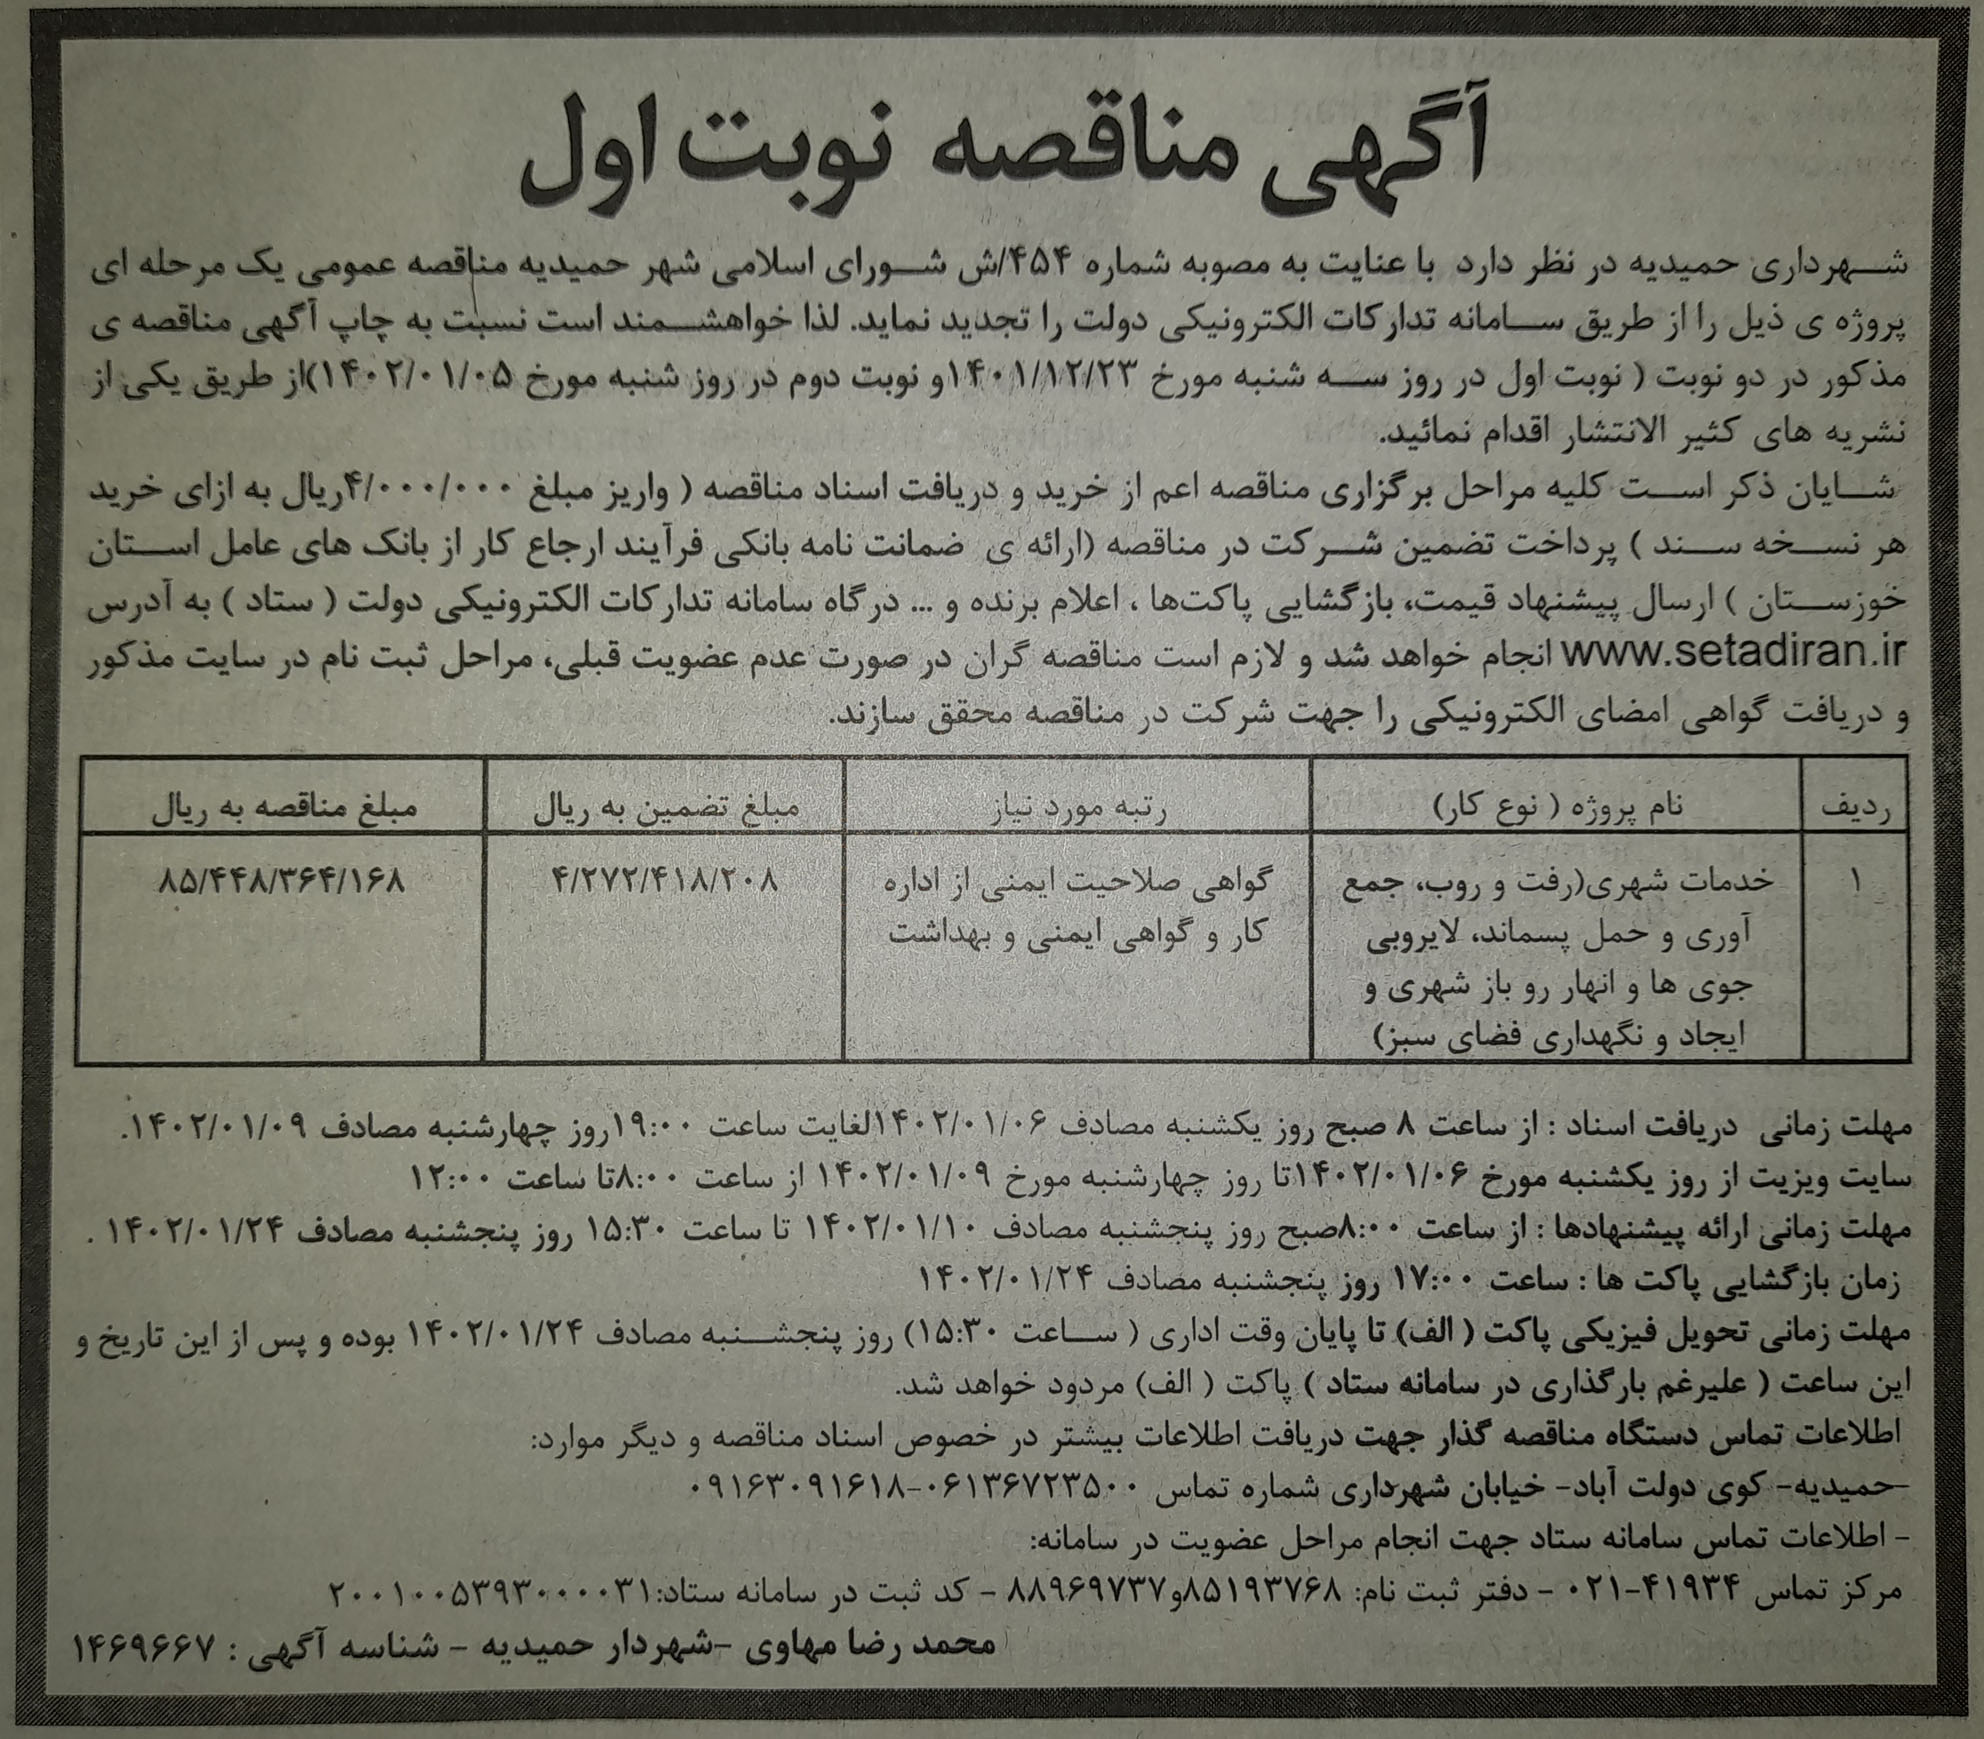 آگهی مناقصه نوبت اول
شهرداری حمیدیه در نظر دارد با عنایت به مصوبه شماره ۴۵۴/ش شورای اسلامی شهر حمیدیه مناقصه عمومی یک مرحله ای
پروژه ی ذیل را از طریق سامانه تدارکات الکترونیکی دولت را تجدید نماید. لذا خواهشمند است نسبت به چاپ آگهی مناقصه ی
مذکور در دو نوبت ( نوبت اول در روز سه شنبه مورخ ۱۴۰۱/۱۲/۲۳و نوبت دوم در روز شنبه مورخ ۱۴۰۲/۰۱/۰۵)از طریق یکی از
نشریه های کثیر الانتشار اقدام نمائید.
شایان ذکر است کلیه مراحل برگزاری مناقصه اعم از خرید و دریافت اسناد مناقصه ( واریز مبلغ ۴/۰۰۰/۰۰۰ریال به ازای خرید
هر نسخه سند ) پرداخت تضمین شرکت در مناقصه (ارائه ی ضمانت نامه بانکی فرآیند ارجاع کار از بانک های عامل استان
خوزستان ) ارسال پیشنهاد قیمت، بازگشایی پاکت‌ها ، اعلام برنده و ... درگاه سامانه تدارکات الکترونیکی دولت ( ستاد ) به آدرس
www.setadiran.ir انجام خواهد شد و لازم است مناقصه گران در صورت عدم عضویت قبلی، مراحل ثبت نام در سایت مذکور
و دریافت گواهی امضای الکترونیکی را جهت شرکت در مناقصه محقق سازند.
ردیف	نام پروژه ( نوع کار)	رتبه مورد نیاز	مبلغ تضمین به ریال	مبلغ مناقصه به ریال
۱	خدمات شهری(رفت و روب، جمع	گواهی صلاحیت ایمنی از اداره	۴/۲۷۲/۴۱۸/۲۰۸	۸۵/۴۴۸/۳۶۴/۱۶۸
آوری و حمل پسماند، لایروبی	کار و گواهی ایمنی و بهداشت
جوی ها و انهار رو باز شهری و
ایجاد و نگهداری فضای سبز)
مهلت زمانی دریافت اسناد : از ساعت ۸ صبح روز یکشنبه مصادف ۱۴۰۲/۰۱/۰۶لغایت ساعت ۱۹:۰۰روز چهارشنبه مصادف ۱۴۰۲/۰۱/۰۹.
سایت ویزیت از روز یکشنبه مورخ ۱۴۰۲/۰۱/۰۶تا روز چهارشنبه مورخ ۱۴۰۲/۰۱/۰۹ از ساعت ۸:۰۰تا ساعت ۱۲:۰۰
مهلت زمانی ارائه پیشنهادها : از ساعت ۸:۰۰صبح روز پنجشنبه مصادف ۱۴۰۲/۰۱/۱۰ تا ساعت ۱۵:۳۰ روز پنجشنبه مصادف ۱۴۰۲/۰۱/۲۴ .
زمان بازگشایی پاکت ها : ساعت ۱۷:۰۰ روز پنجشنبه مصادف ۱۴۰۲/۰۱/۲۴
مهلت زمانی تحویل فیزیکی پاکت ( الف) تا پایان وقت اداری ( ساعت ۱۵:۳۰) روز پنجشنبه مصادف ۱۴۰۲/۰۱/۲۴ بوده و پس از این تاریخ و
این ساعت ( علیرغم بارگذاری در سامانه ستاد ) پاکت ( الف) مردود خواهد شد.
اطلاعات تماس دستگاه مناقصه گذار جهت دریافت اطلاعات بیشتر در خصوص اسناد مناقصه و دیگر موارد:
-حمیدیه- کوی دولت آباد- خیابان شهرداری شماره تماس ۰۶۱۳۶۷۲۳۵۰۰-۰۹۱۶۳۰۹۱۶۱۸
- اطلاعات تماس سامانه ستاد جهت انجام مراحل عضویت در سامانه:
مرکز تماس ۴۱۹۳۴-۰۲۱ - دفتر ثبت نام: ۸۵۱۹۳۷۶۸و۸۸۹۶۹۷۳۷ - کد ثبت در سامانه ستاد:۲۰۰۱۰۰۵۳۹۳۰۰۰۰۳۱
محمد رضا مهاوی -شهردار حمیدیه - شناسه آگهی : ۱۴۶۹۶۶۷